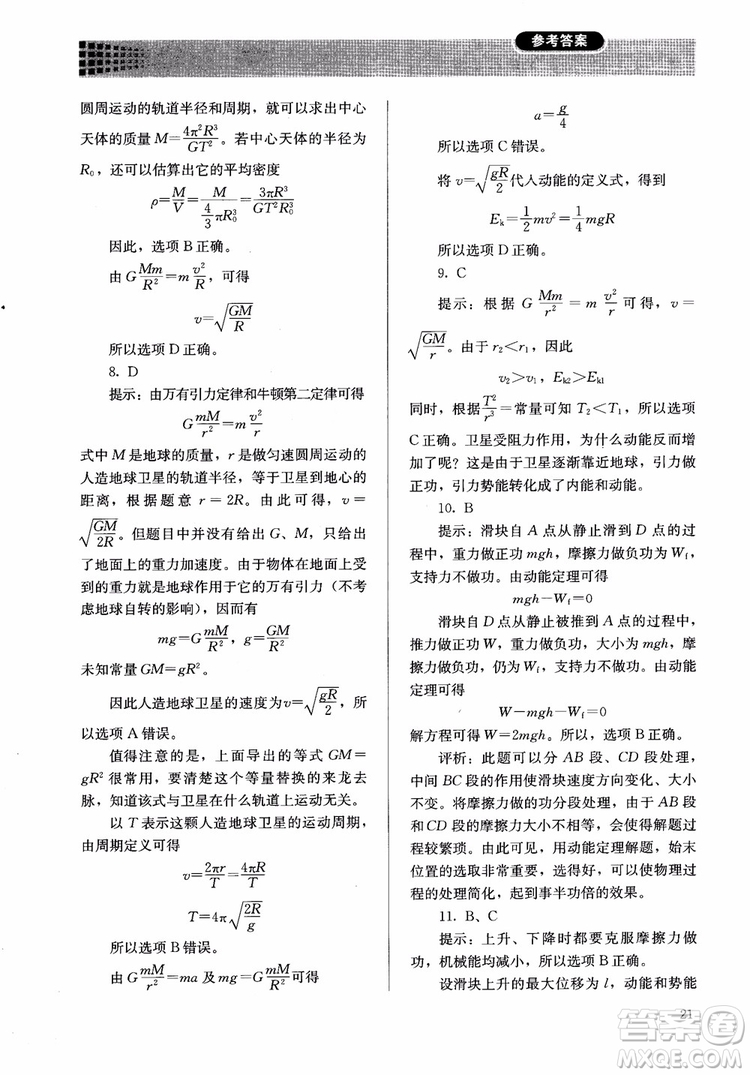 参考答案
圆周运动的轨道半径和周期，就可以求出中心
天体的质量 M=4π²R³/GT²。若中心天体的半径为
R₀，还可以估算出它的平均密度
ρ=M/V=M/(4/3 πR₀³)=3πR³/GT²R₀³
因此，选项 B 正确。
由 G Mm/R²=m v²/R，可得
v=√(GM/R)
所以选项 D 正确。
8. D
提示：由万有引力定律和牛顿第二定律可得
G mM/r²=m v²/r
式中 M 是地球的质量，r 是做匀速圆周运动的
人造地球卫星的轨道半径，等于卫星到地心的
距离，根据题意 r=2R。由此可得，v=
√(GM/2R)。但题目中并没有给出 G、M，只给出
了地面上的重力加速度。由于物体在地面上受
到的重力就是地球作用于它的万有引力（不考
虑地球自转的影响），因而有
mg=G mM/R²，g=GM/R²
未知常量 GM=gR²。
因此人造地球卫星的速度为 v=√(gR/2)，所
以选项 A 错误。
值得注意的是，上面导出的等式 GM=
gR² 很常用，要清楚这一等量替换的来龙去
脉，知道该式与卫星在什么轨道上运动无关。
以 T 表示这颗人造地球卫星的运动周期，
由周期定义可得
v=2πr/T=4πR/T
T=4π√(2R/g)
所以选项 B 错误。
由 G mM/r²=ma 及 mg=G mM/R² 可得
a=g/4
所以选项 C 错误。
将 v=√(gR/2) 代入动能的定义式，得到
Eₖ=1/2 mv²=1/4 mgR
所以选项 D 正确。
9. C
提示：根据 G Mm/r²=m v²/r 可得，v=
√(GM/r)。由于 r₂<r₁，因此
v₂>v₁，Eₖ₂>Eₖ₁
同时，根据 T²/r³=常量可知 T₂<T₁，所以选项
C 正确。卫星受阻力作用，为什么动能反而增
大了呢？这是由于卫星逐渐靠近地球，引力做
正功，引力势能转化成了内能和动能。
10. B
提示：滑块自 A 点从静止滑到 D 点的过
程中，重力做功 mgh，摩擦力做负功为 Wf，
支持力不做功。由动能定理可得
mgh−Wf=0
滑块自 D 点从静止被推到 A 点的过程中，
推力做正功 W，重力做负功，大小为 mgh，摩
擦力做负功，仍为 Wf，支持力不做功。由动能
定理可得
W−mgh−Wf=0
解方程可得 W=2mgh。所以，选项 B 正确。
评析：此题可以分 AB 段、CD 段处理，
中间 BC 段的作用使滑块速度方向变化、大小
不变。将摩擦力做的功分段处理，由于 AB 段
与 CD 段的摩擦力大小不相等，会使得解题过
程较繁琐。由此可见，用动能定理解题，始末
位置的选取非常重要，选择恰当，可以使物理过
程的处理简化，起到事半功倍的效果。
11. B、C
提示：上升、下降时都要克服摩擦力做
功，机械能均减小，所以选项 B 正确。
设滑块上升的最大位移为 l，动能和势能
21
答案圈
MXQE.COM